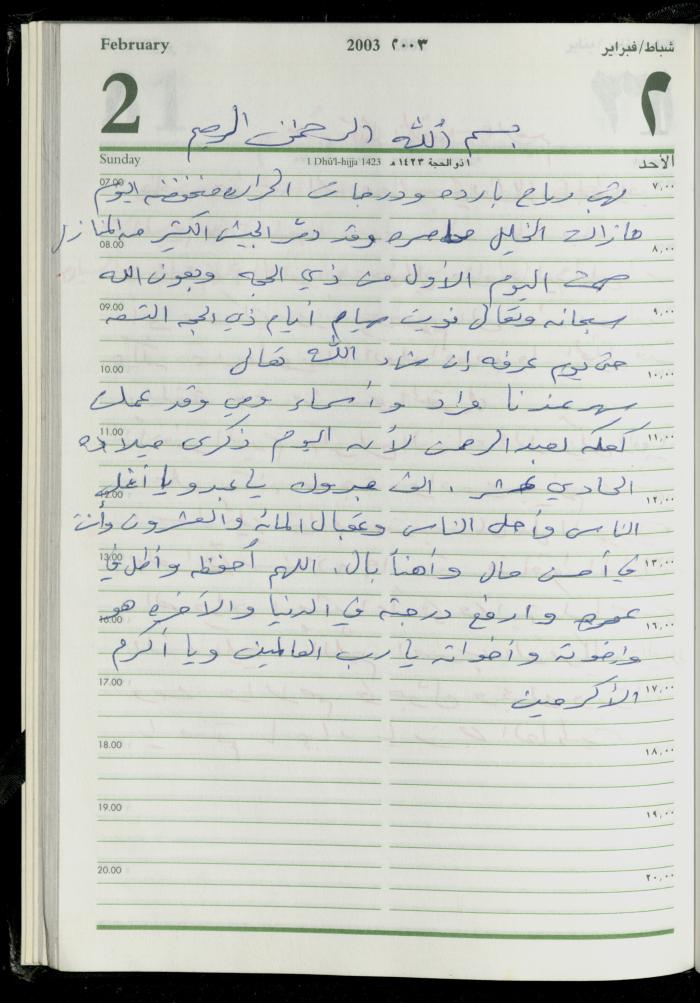 February 2003 ٢٠٠٣ شباط/فبراير
2 ٢
بسم الله الرحمن الرحيم
Sunday 1 Dhû'l-hijja 1423 ١ ذو الحجة ١٤٢٣هـ الأحد
07.00 ٧,٠٠
تهب رياح بارده ودرجات الحراره منخفضه اليوم
مازالت الخليل محاصره وقد دمّر الجيش الكثير من المنازل
08.00 ٨,٠٠
صمت اليوم الأول من ذي الحجه وبعون الله
09.00 ٩,٠٠
سبحانه وتعالى نويت صيام أيام ذي الحجه التسعه
حتى يوم عرفه إن شاء الله تعالى
10.00 ١٠,٠٠
سهر عندنا مراد وأسماء ومي وقد عملت
11.00 ١١,٠٠
كعكه لعبدالرحمن لأنه اليوم ذكرى ميلاده
الحادي عشر . الف مبروك يا عبدو يا أغلى
12.00 ١٢,٠٠
الناس وأحلى الناس وعقبال المائه والعشرون وأنت
13.00 ١٣,٠٠
في أحسن حال وأهنأ بال. اللهم أحفظه وأطل في
عمره وارفع درجته في الدنيا والآخره هو
16.00 ١٦,٠٠
وإخوته وأخواته يا رب العالمين ويا أكرم
17.00 ١٧,٠٠
الأكرمين
18.00 ١٨,٠٠
19.00 ١٩,٠٠
20.00 ٢٠,٠٠